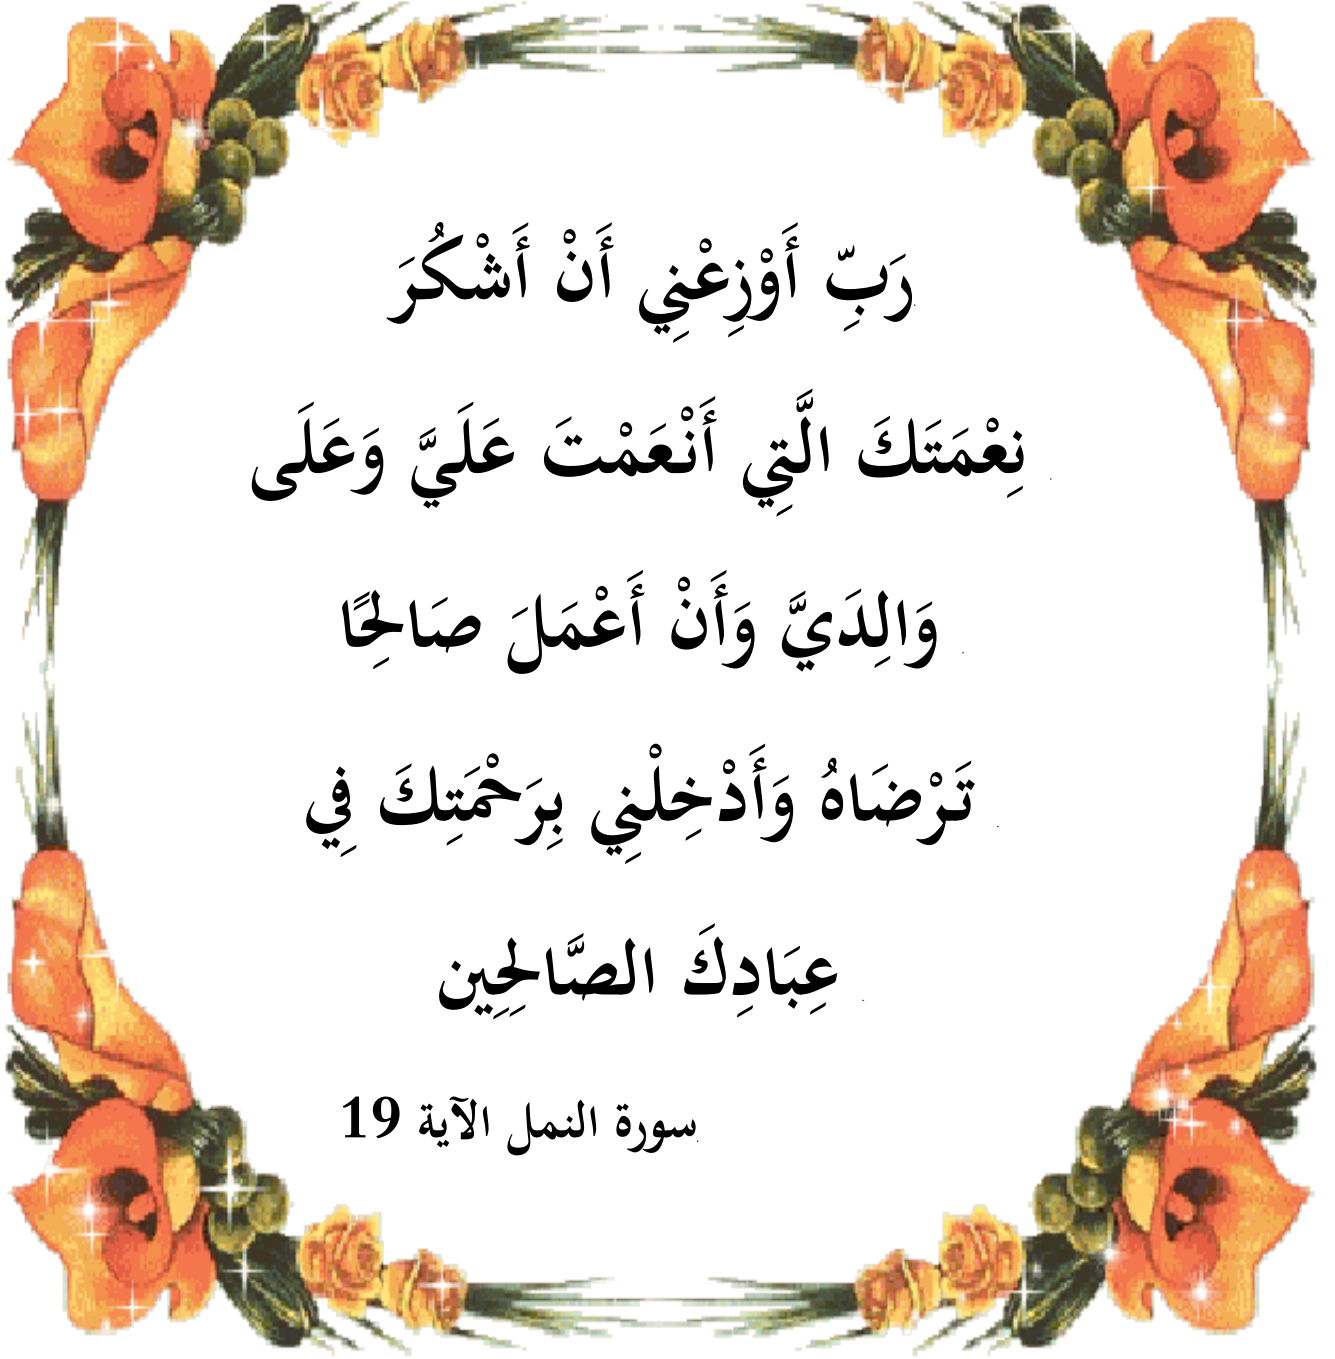 رَبِّ أَوْزِعْنِي أَنْ أَشْكُرَ
نِعْمَتَكَ الَّتِي أَنْعَمْتَ عَلَيَّ وَعَلَى
وَالِدَيَّ وَأَنْ أَعْمَلَ صَالِحًا
تَرْضَاهُ وَأَدْخِلْنِي بِرَحْمَتِكَ فِي
عِبَادِكَ الصَّالِحِين
سورة النمل الآية 19